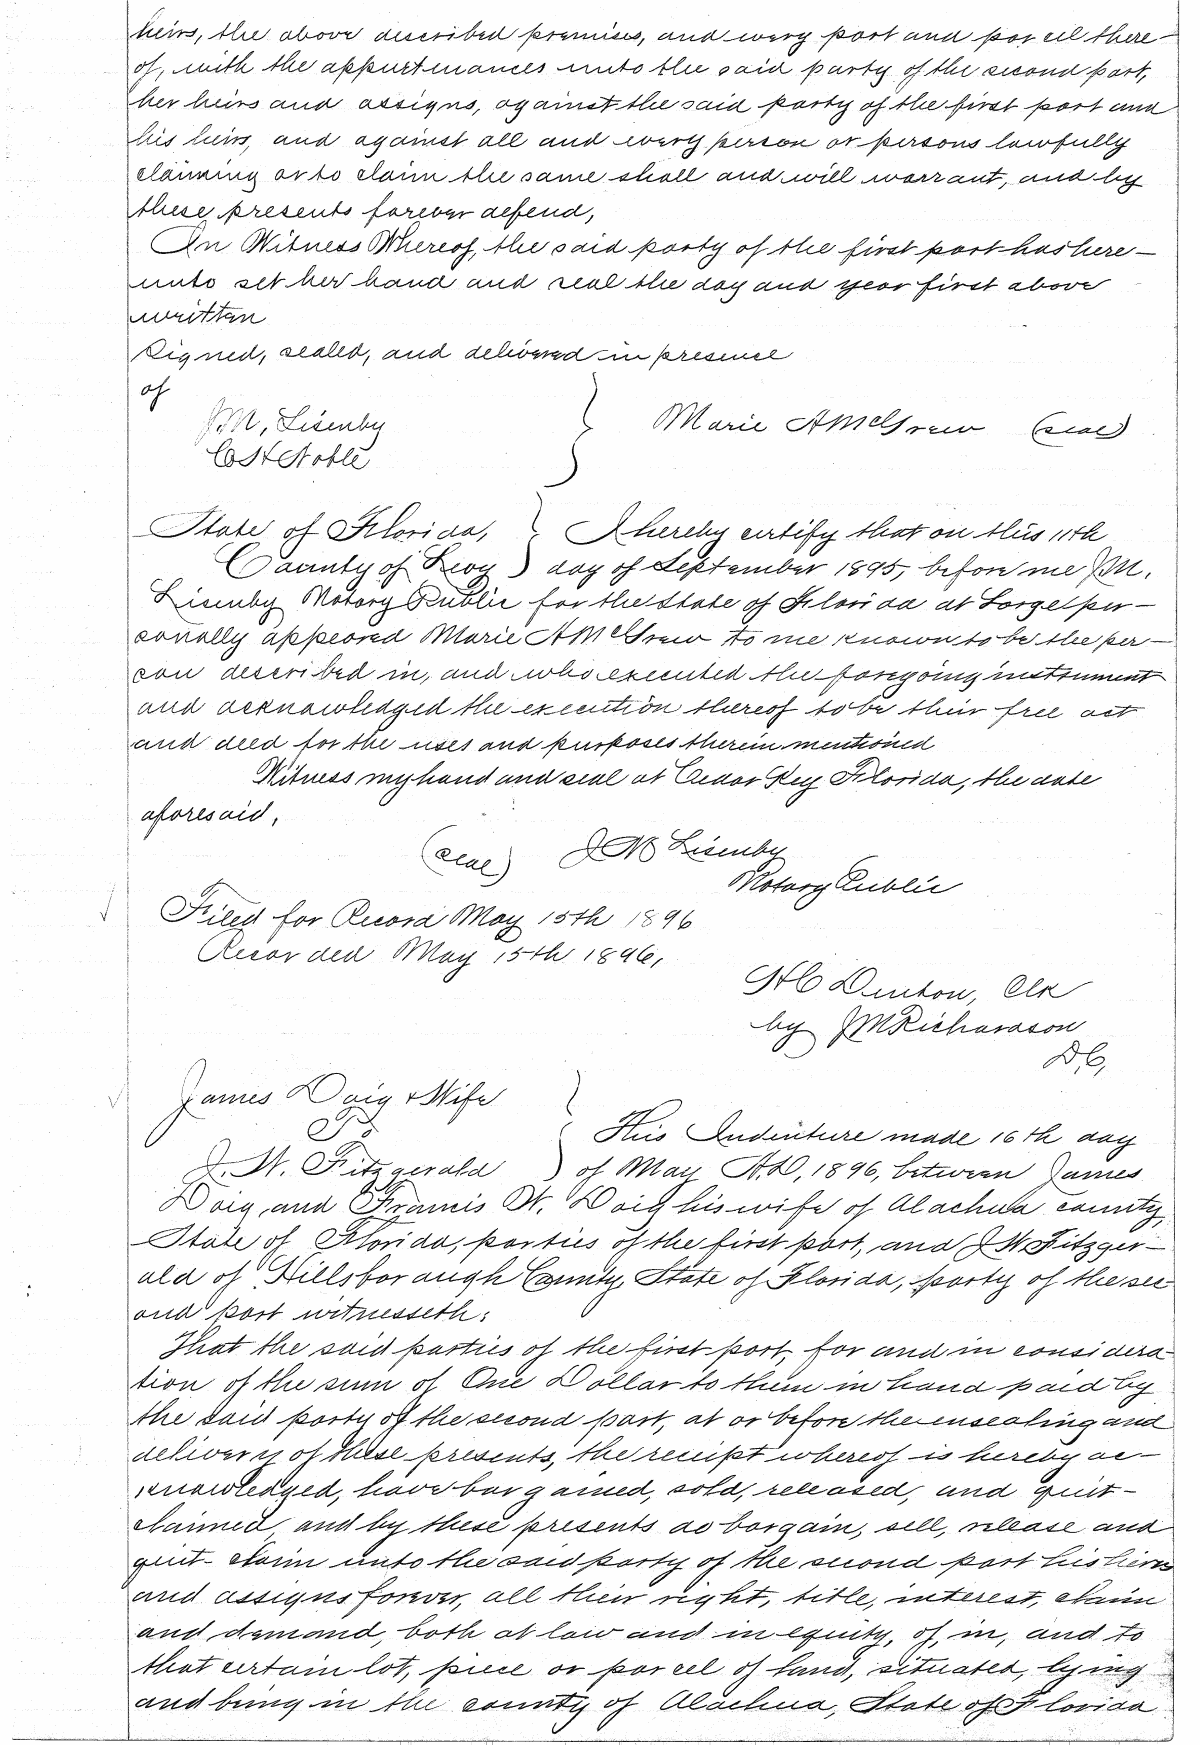 heirs, the above described premises, and every part and parcel there-
of, with the appurtenances unto the said party of the second part,
her heirs and assigns, against the said party of the first part and
his heirs, and against all and every person or persons lawfully
claiming or to claim the same shall and will warrant, and by
these presents forever defend,
In Witness Whereof, the said party of the first part has here-
unto set her hand and seal the day and year first above
written
Signed, sealed, and delivered in presence
of
J.M, Lisenby
Marie A McGrew (seal)
State of Florida, I hereby certify that on this 11th
County of Levy day of September 1895, before me J.M.
Lisenby Notary Public for the State of Florida at Large per-
sonally appeared Marie A McGrew to me known to be the per-
son described in, and who executed the foregoing instrument
and acknowledged the execution thereof to be their free act
and deed for the uses and purposes therein mentioned
Witness my hand and seal at Cedar Key Florida, the date
aforesaid,
(seal) J M Lisenby
Notary Public
Filed for Record May 15th 1896
Recorded May 15th 1896,
H C Denton, Clk
by J M Richardson
D.C,
James Doig & Wife
To This Indenture made 16th day
J. W. Fitzgerald of May A.D, 1896, between James
Doig, and Francis W. Doig his wife of Alachua county,
State of Florida, parties of the first part, and J W Fitzger-
ald of Hillsborough County, State of Florida, party of the sec
ond part witnesseth:
That the said parties of the first part, for and in considera
tion of the sum of One Dollar to them in hand paid by
the said party of the second part, at or before the ensealing and
delivery of these presents, the receipt whereof is hereby ac-
knowledged, have bargained, sold, released, and quit-
claimed, and by these presents do bargain, sell, release and
quit-claim unto the said party of the second part his heirs
and assigns forever, all their right, title, interest, claim
and demand, both at law and in equity, of, in, and to
that certain lot, piece or parcel of land, situated, lying
and being in the county of Alachua, State of Florida